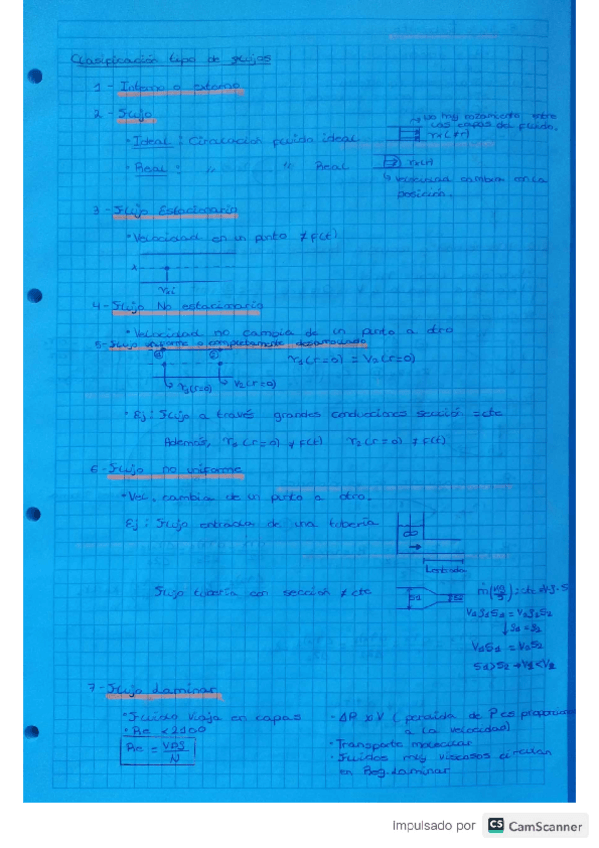 Clasificación tipo de flujos
1 - Interno o externo
2 - Flujo
→ no hay rozamiento entre las capas del fluido.
· Ideal : Circulación fluido ideal
v≠(r)
· Real : " " Real
v=(r)
↳ Velocidad cambia con la posición.
3 - Flujo Estacionario
· Velocidad en un punto ≠ f(t)
4 - Flujo No estacionario
· Velocidad no cambia de un punto a otro
5- Flujo uniforme o completamente desarrollado
V1(r=0) = V2(r=0)
V1(r=0) V2(r=0)
· Ej: Flujo a través grandes conducciones sección = cte
Además,
6 - Flujo no uniforme
· Vel. cambia de un punto a otro.
Ej : Flujo entrada de una tubería
Lentrada
Flujo tubería con sección ≠ cte
S1 S2
S1>S2 → V1<V2
7 - Flujo Laminar
· Fluido viaja en capas
· Re < 2100
· ΔP ∝ V ( perdida de P es proporcional a la velocidad)
· Transporte molecular
· Fluidos muy viscosos circulan en Reg. Laminar
Impulsado por CS CamScanner